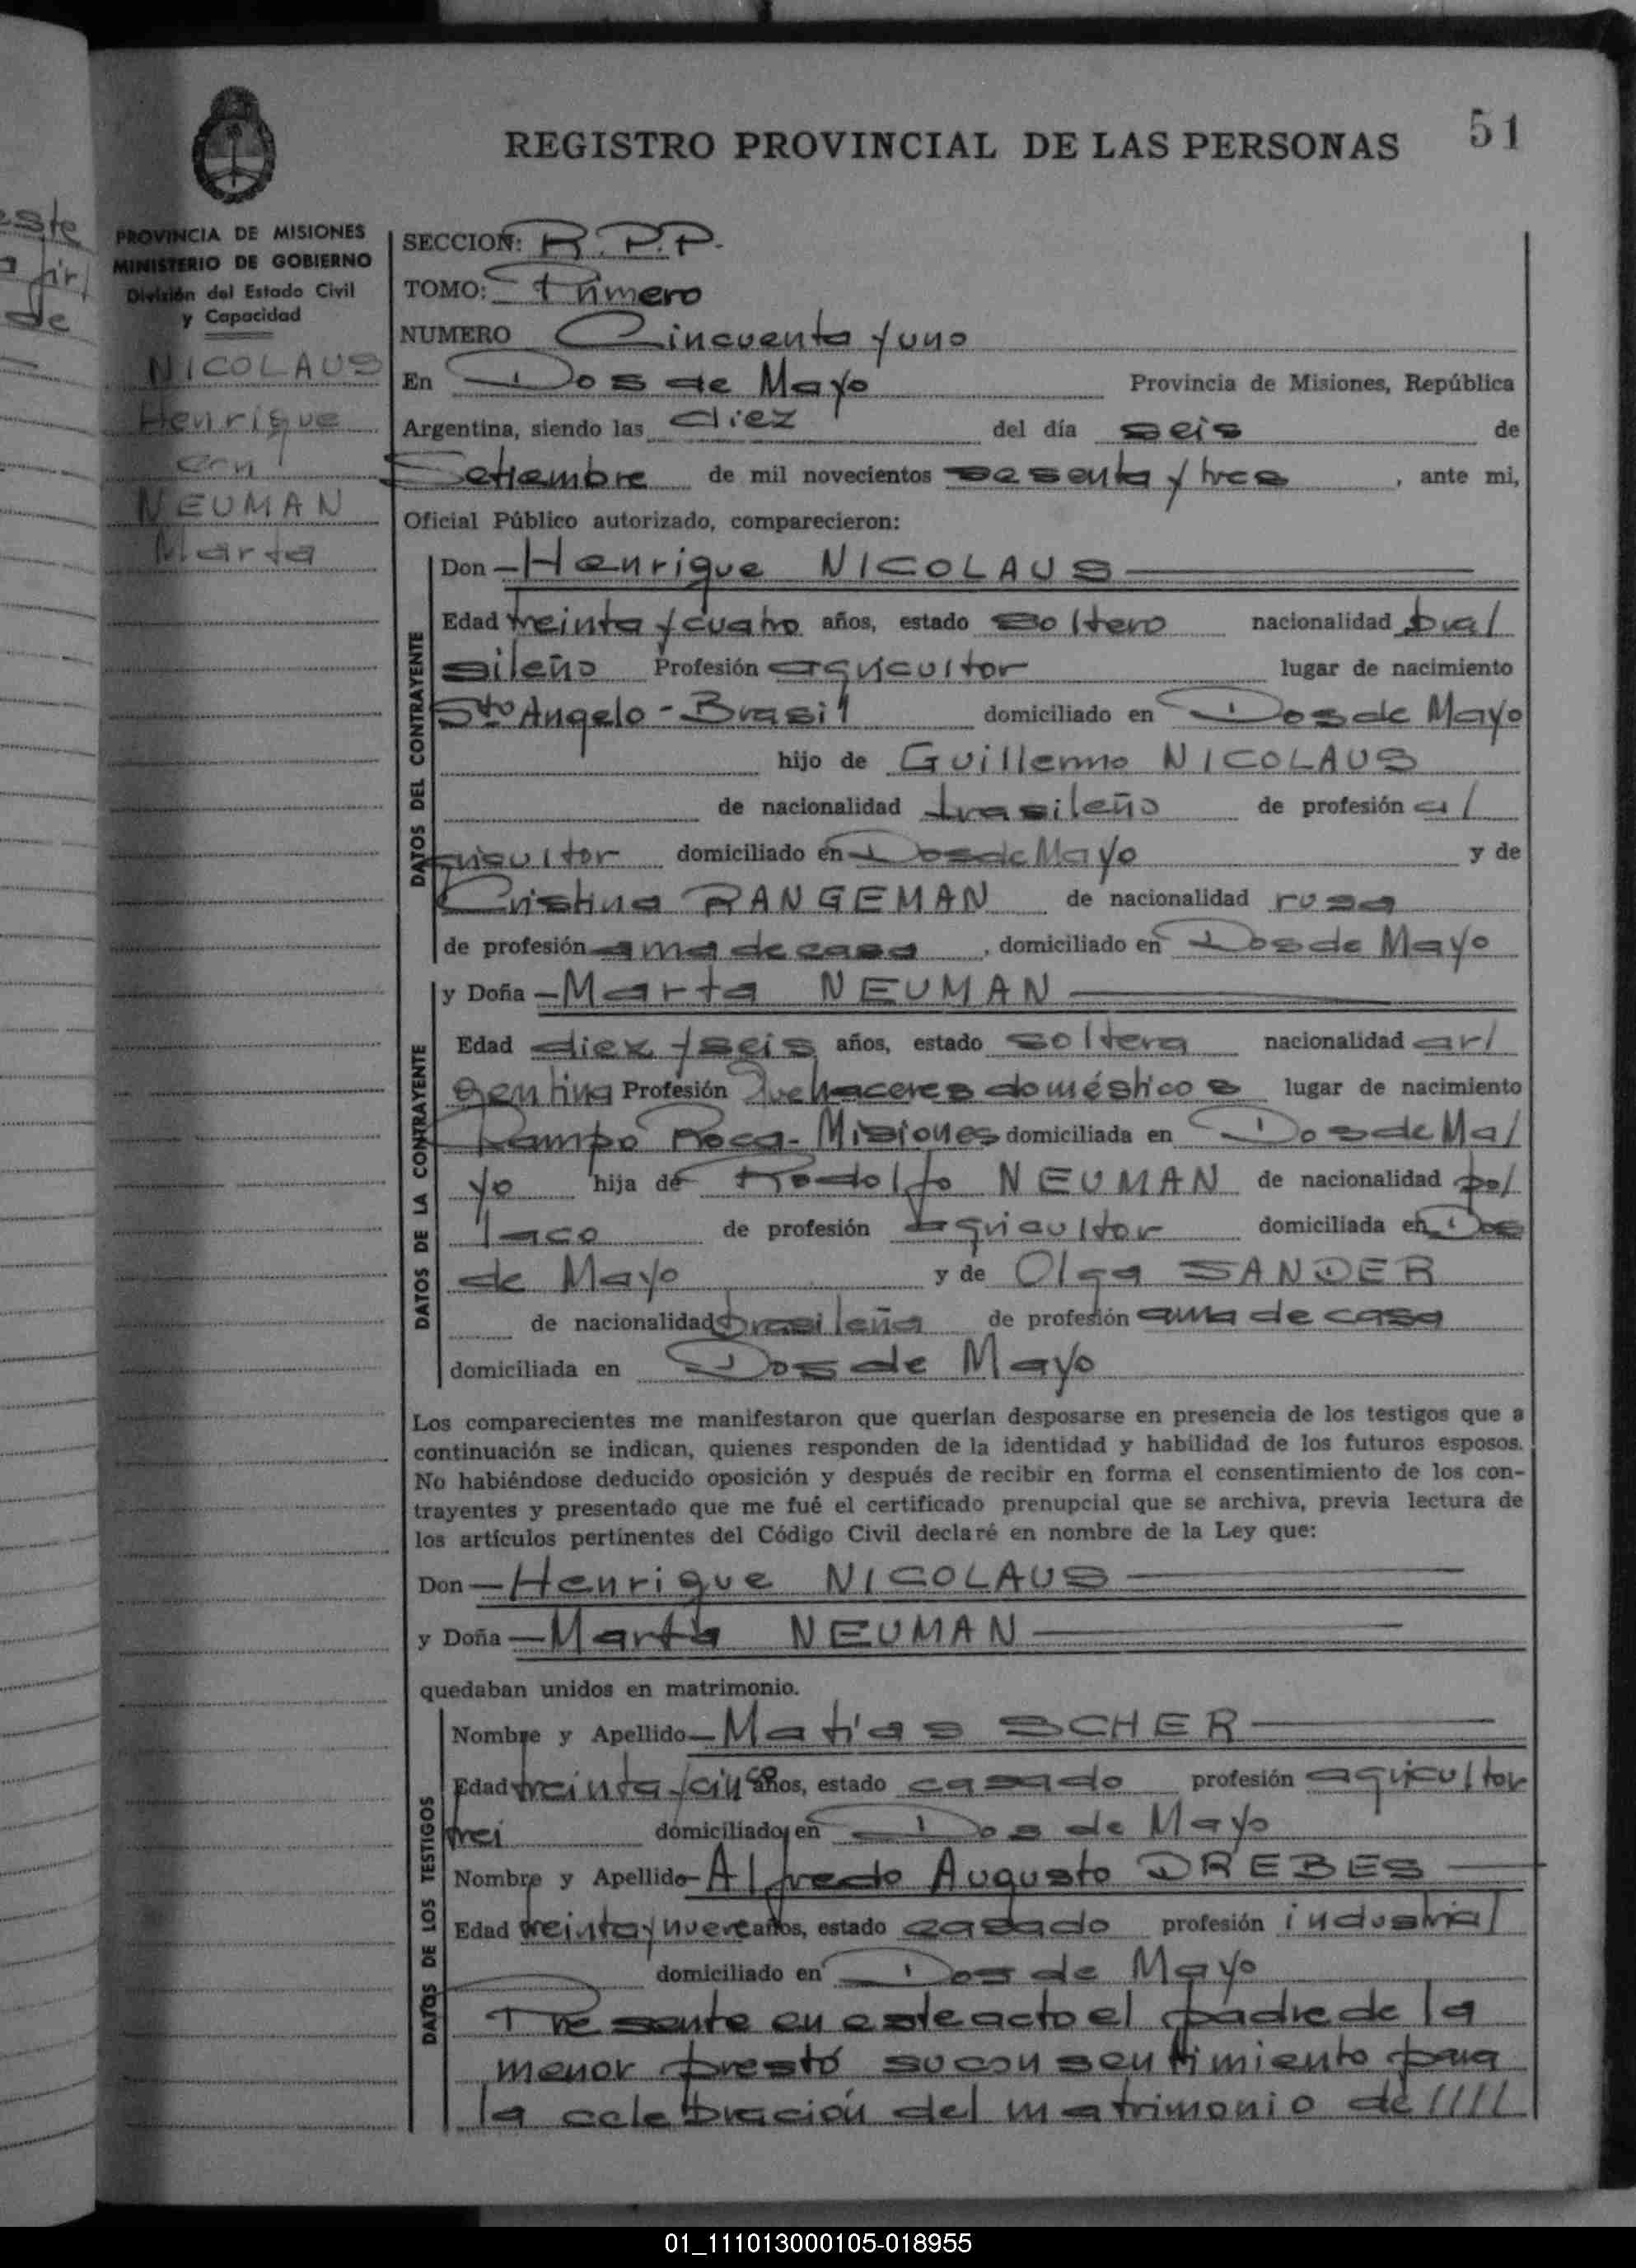 51
REGISTRO PROVINCIAL DE LAS PERSONAS
PROVINCIA DE MISIONES
MINISTERIO DE GOBIERNO
División del Estado Civil
y Capacidad
NICOLAUS
Henrique
con
NEUMAN
Marta
este
de
SECCION: R.P.P.
TOMO: Primero
NUMERO Cincuenta y uno
En Dos de Mayo Provincia de Misiones, República
Argentina, siendo las diez del día seis de
Setiembre de mil novecientos sesenta y tres, ante mi,
Oficial Público autorizado, comparecieron:
DATOS DEL CONTRAYENTE
Don - Henrique NICOLAUS
Edad treinta y cuatro años, estado soltero nacionalidad bra/
sileño Profesión agricultor lugar de nacimiento
Sto Angelo - Brasil domiciliado en Dos de Mayo
hijo de Guillermo NICOLAUS
de nacionalidad brasileño de profesión a/
gricultor domiciliado en Dos de Mayo y de
Cristina RANGEMAN de nacionalidad rusa
de profesión ama de casa, domiciliado en Dos de Mayo
DATOS DE LA CONTRAYENTE
y Doña - Marta NEUMAN
Edad diez y seis años, estado soltera nacionalidad ar/
gentina Profesión Quehaceres domésticos lugar de nacimiento
Campo Roca - Misiones domiciliada en Dos de Ma/
yo hija de Rodolfo NEUMAN de nacionalidad po/
laco de profesión agricultor domiciliada en Dos
de Mayo y de Olga SANDER
de nacionalidad brasileña de profesión ama de casa
domiciliada en Dos de Mayo
Los comparecientes me manifestaron que querían desposarse en presencia de los testigos que a
continuación se indican, quienes responden de la identidad y habilidad de los futuros esposos.
No habiéndose deducido oposición y después de recibir en forma el consentimiento de los con-
trayentes y presentado que me fué el certificado prenupcial que se archiva, previa lectura de
los artículos pertinentes del Código Civil declaré en nombre de la Ley que:
Don - Henrique NICOLAUS
y Doña - Marta NEUMAN
quedaban unidos en matrimonio.
DATOS DE LOS TESTIGOS
Nombre y Apellido - Matías SCHER
Edad treinta y cinco años, estado casado profesión agricultor
domiciliado en Dos de Mayo
Nombre y Apellido - Alfredo Augusto DREBES
Edad treinta y nueve años, estado casado profesión industrial
domiciliado en Dos de Mayo
Presente en este acto el padre de la
menor prestó su consentimiento para
la celebración del matrimonio de ////
01_111013000105-018955